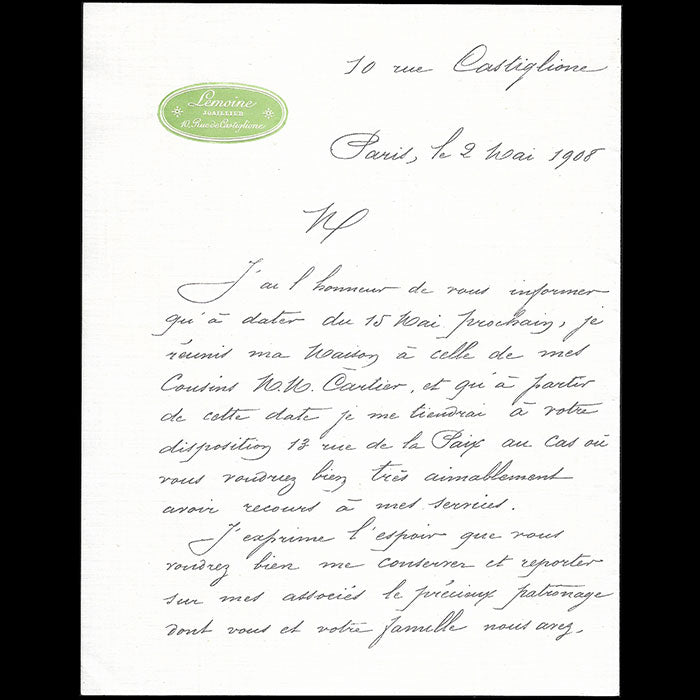 10 rue Castiglione
Lemoine
JOAILLIER
10, Rue de Castiglione
Paris, le 2 Mai 1908
M
J'ai l'honneur de vous informer
qu'à dater du 15 Mai prochain, je
réunis ma Maison à celle de mes
Cousins M.M. Cartier, et qu'à partir
de cette date je me tiendrai à votre
disposition 13 rue de la Paix au cas où
vous voudriez bien très aimablement
avoir recours à mes services.
J'exprime l'espoir que vous
voudrez bien me conserver et reporter
sur mes associés le précieux patronage
dont vous et votre famille nous avez,